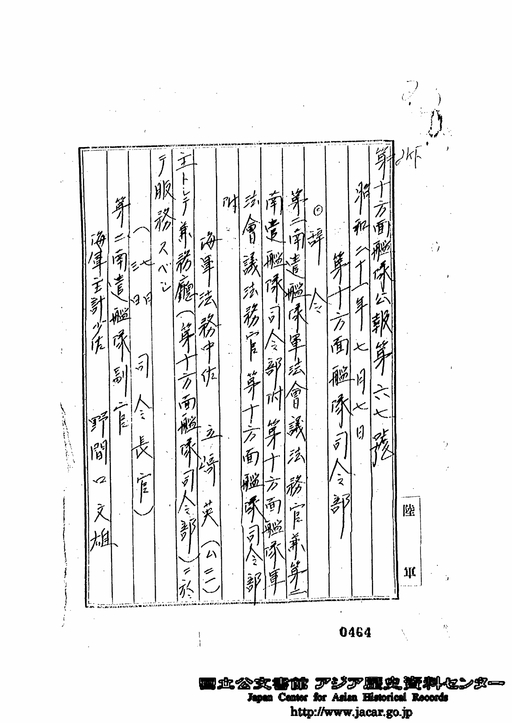 第十方面艦隊公報第六七號
昭和二十一年七月七日
第十方面艦隊司令部
◎辞令
第二南遣艦隊軍法會議法務官兼第二
南遣艦隊司令部附第十方面艦隊軍
法會議法務官第十方面艦隊司令部
附
海軍法務中佐 立 英
主トシテ兼務廳(第十方面艦隊司令部)ニ於
テ服務スベシ
司令長官)
第二南遣艦隊副官
海軍主計少佐 野間口文雄
陸軍
0464
国立公文書館 アジア歴史資料センター
Japan Center for Asian Historical Records
http://www.jacar.go.jp